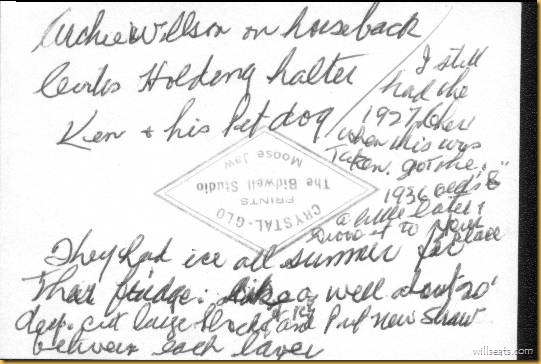 Archie Willson on horseback
Curtis Holding halter
Ken + his Pet dog
I still
had the
1927 Chev
when this was
Taken. got the
1936 Olds "8"
a little later &
Drove it to your
place
CRYSTAL-GLO
PRINTS
The Bidwell Studio
Moose Jaw
They had ice all summer for
Their fridge. like a well about 20'
deep. cut large blocks of ice and Put new Straw
between each layer
willseats.com